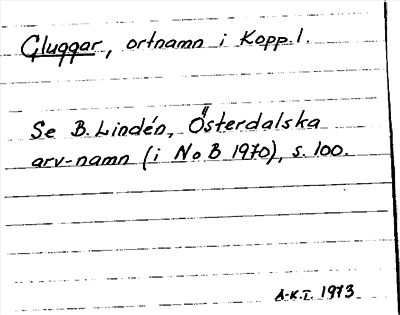 Gluggar, ortnamn i Kopp.l.
Se B. Lindén, Österdalska
arv-namn (i NoB 1970), s. 100.
A-K.I. 1973